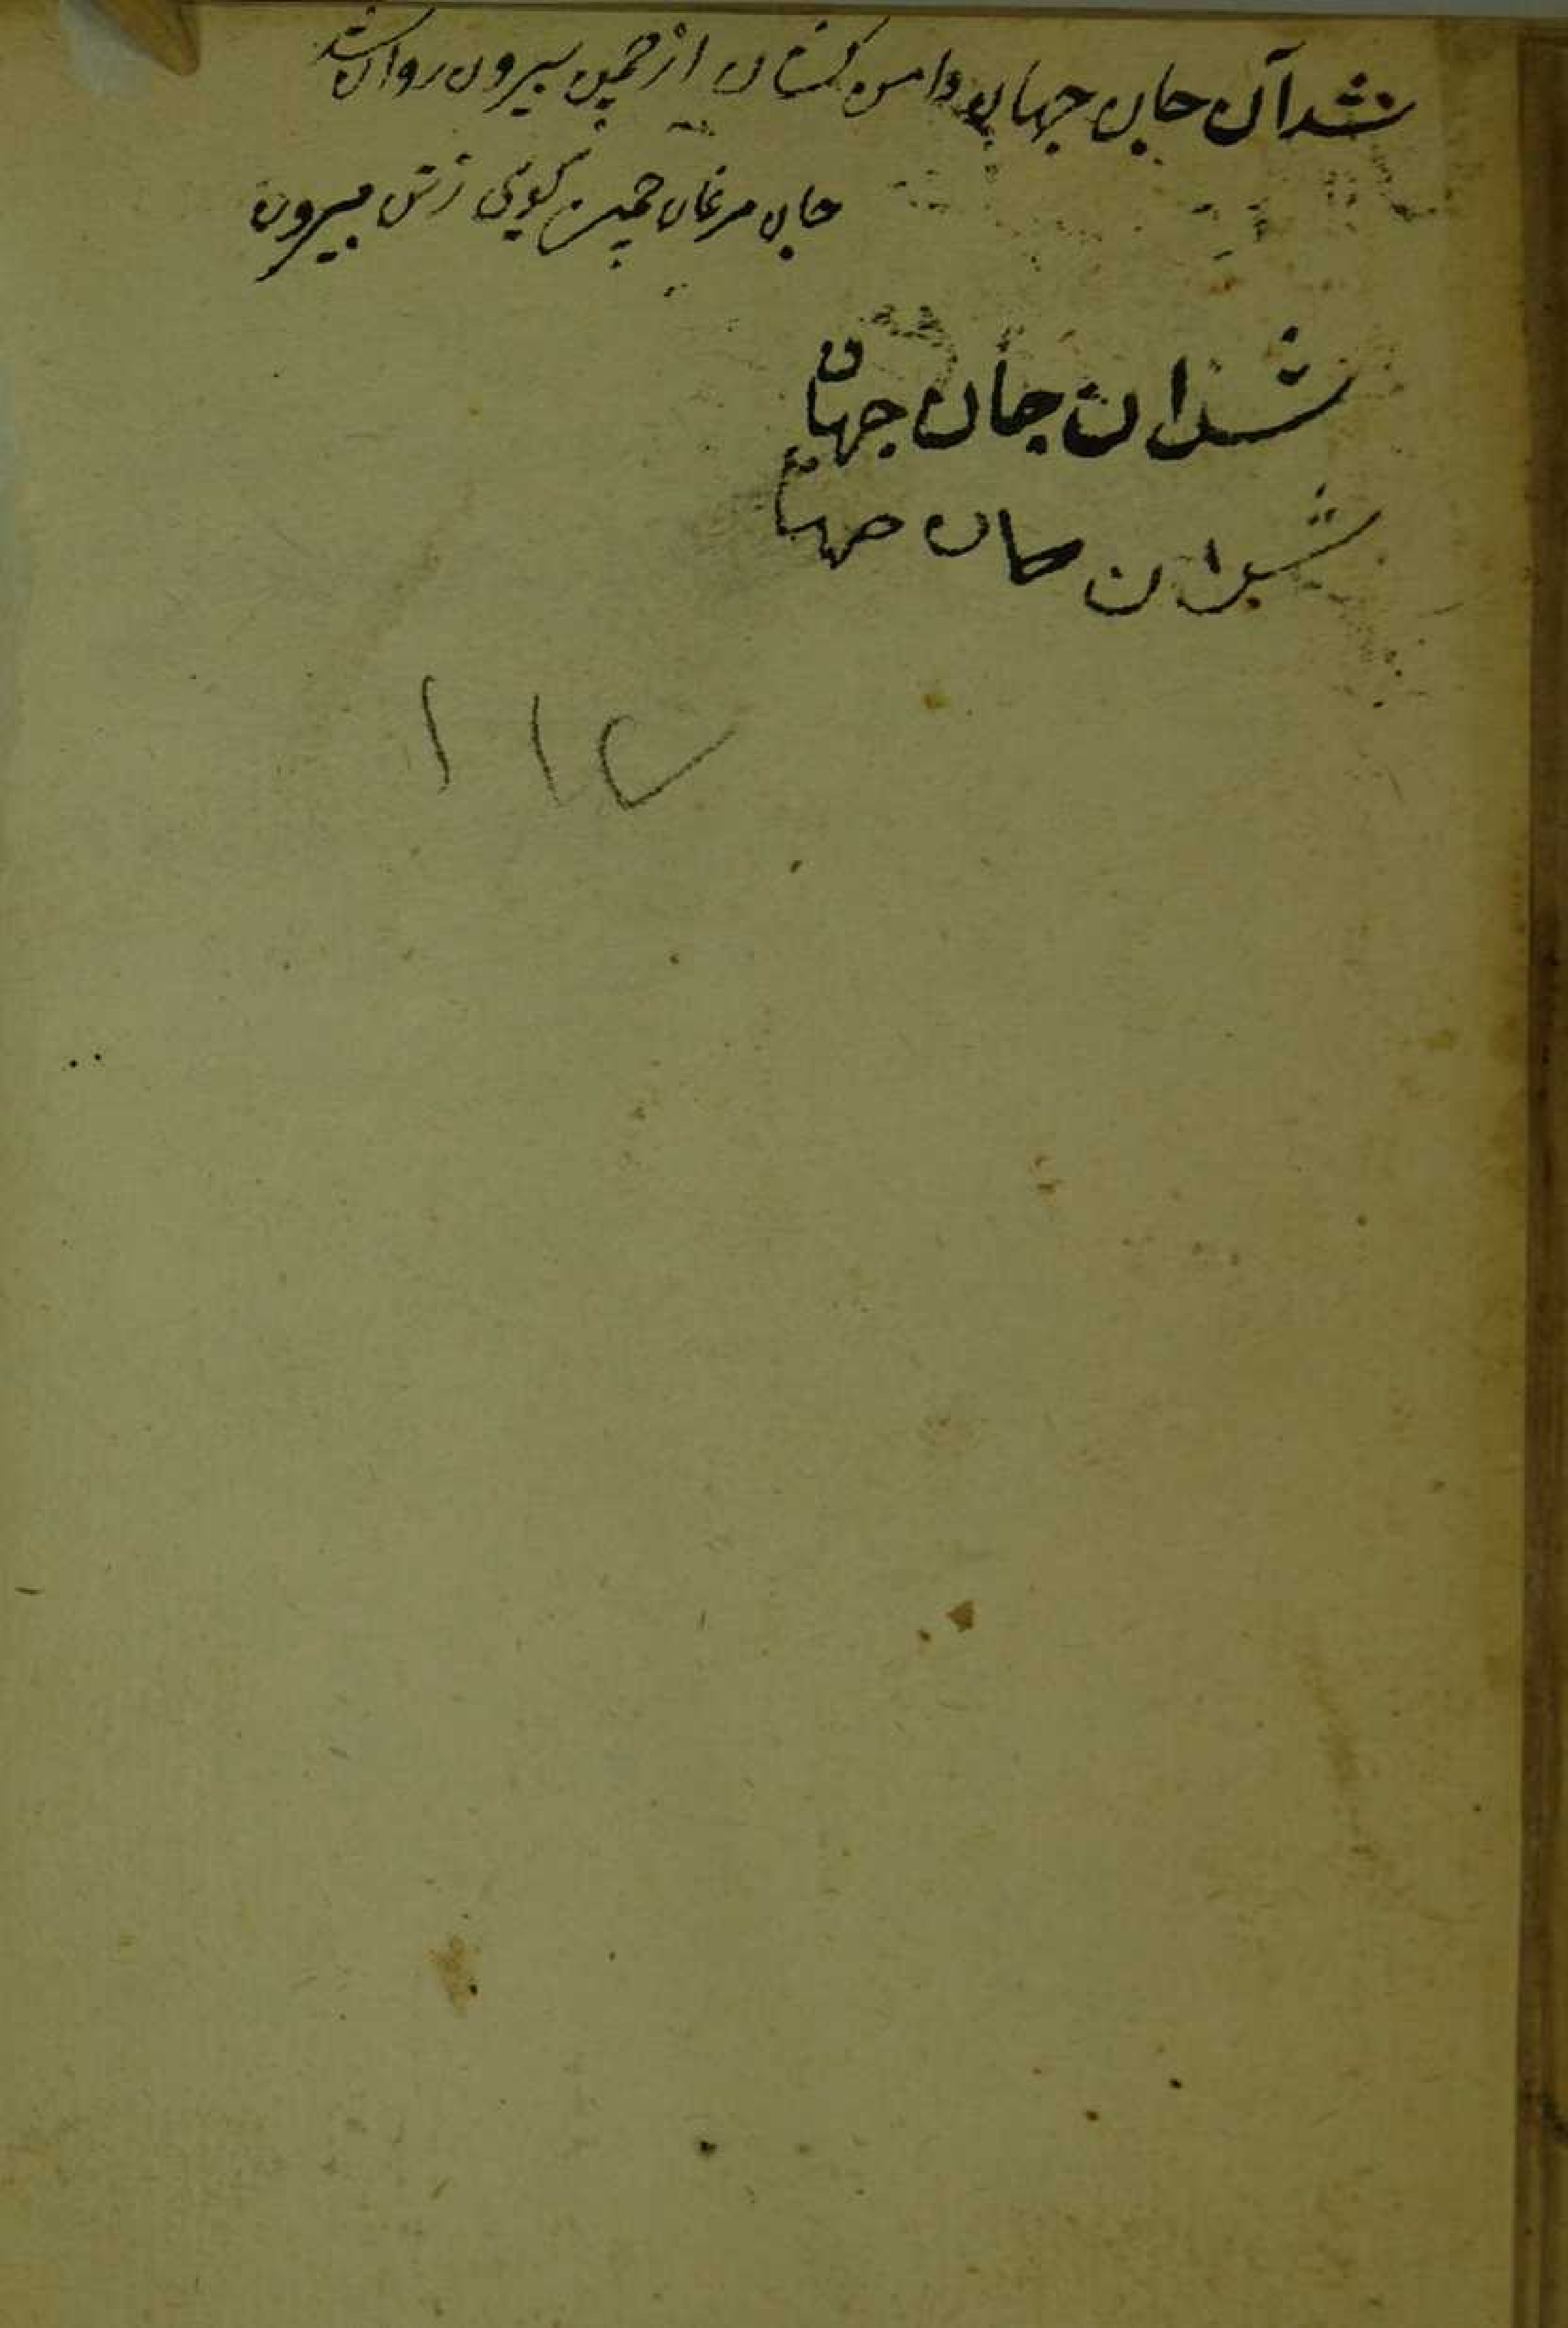 شد آن جان جهان دامن کشان از چمن بیرون روان شد
جان مرغان چمن گویی ز تن بیرون
شد ان جان جهان
شد ان جان جهان